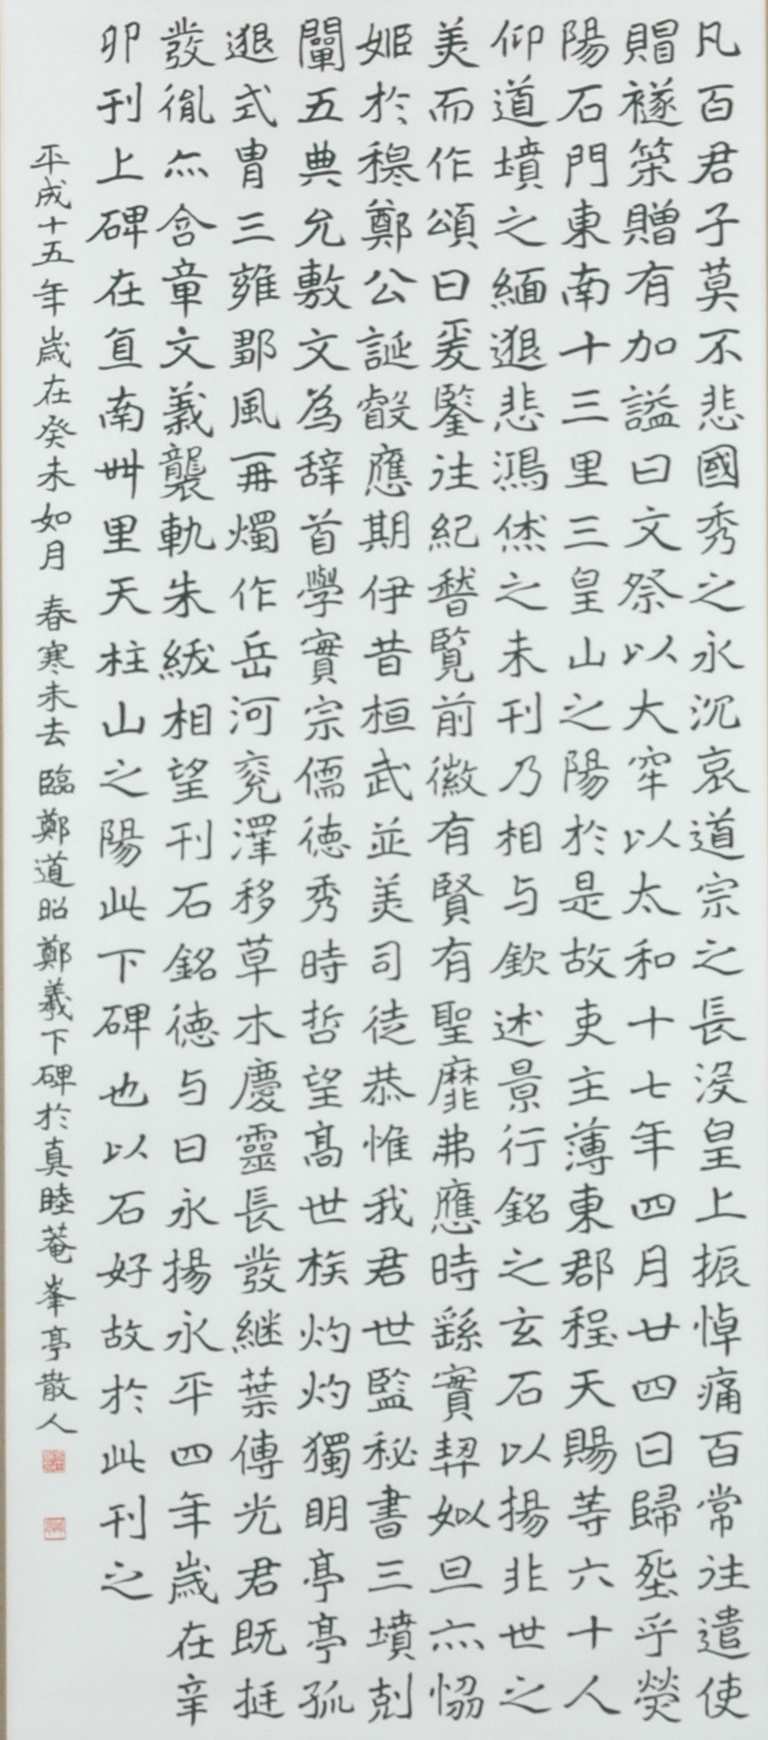 凡百君子莫不悲國秀之永沉哀道宗之長没皇上振悼痛百常往遣使
賵襚策贈有加謚曰文祭以大牢以太和十七年四月廿四日歸塟乎熒
陽石門東南十三里三皇山之陽於是故吏主薄東郡程天賜等六十人
仰道墳之緬邈悲鴻烋之未刊乃相与欽述景行銘之玄石以揚非世之
美而作頌曰爰鑒往紀稽覧前徽有賢有聖靡弗應時繇實契姒旦亦協
姬於穆鄭公誕睿應期伊昔桓武並美司徒恭惟我君世監秘書三墳剋
闡五典允敷文為辞首學實宗儒德秀時哲望高世族灼灼獨明亭亭孤
邈式胄三雍鄀風再燭作岳河兖澤移草木慶靈長發継葉傳光君既挺
發胤亦含章文義襲軌朱紱相望刊石銘德与日永揚永平四年歲在辛
卯刊上碑在直南卌里天柱山之陽此下碑也以石好故於此刊之
平成十五年歲在癸未如月 春寒未去 臨鄭道昭鄭羲下碑於真睦菴峯亭散人